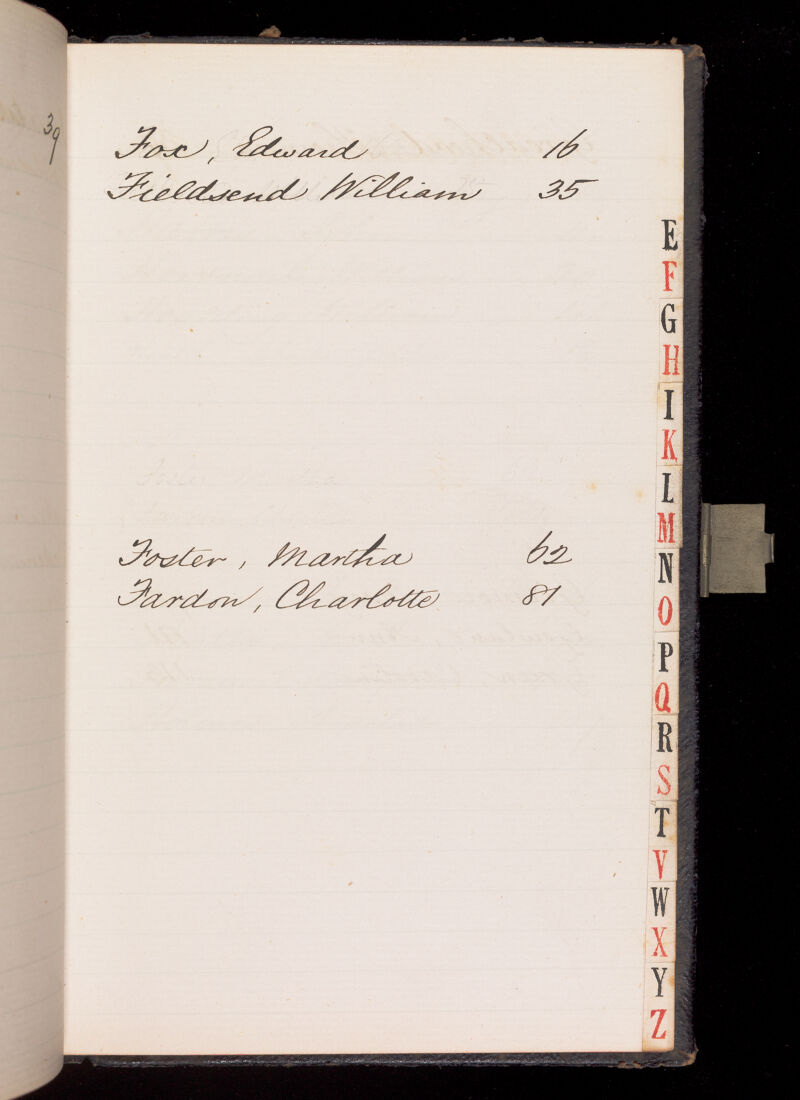 39
Fox, Edward 16
Fieldsend William 35
Foster, Martha 62
Fardon, Charlotte 81
E
F
G
H
I
K
L
M
N
O
P
Q
R
S
T
V
W
X
Y
Z